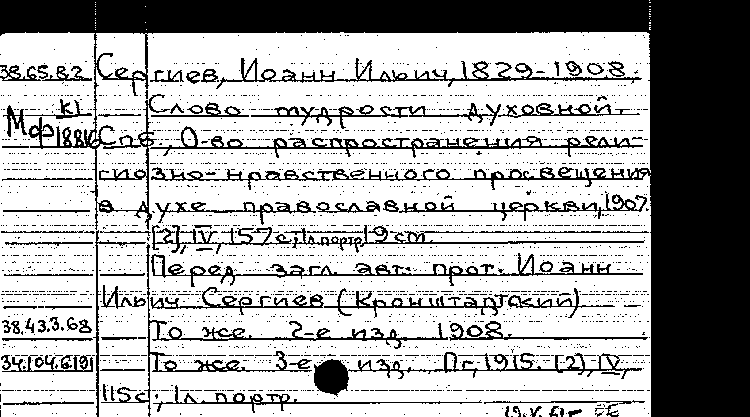 38.65.82 Сергиев, Иоанн Ильич, 1829-1908.
К1 Слово мудрости духовной.
Мф 18816 Спб., О-во распространения рели-
гиозно-нравственного просвещения
в духе православной церкви, 1907
[2], IV, 157 с; 1л. портр. 19 cm.
Перед загл. авт: прот. Иоанн
Ильич Сергиев (Кронштадтский)
38.43.3.68 То же. 2-е изд. 1908.
34.104.6.191 То же. 3-е изд. Пг, 1915. [2], IV,
115с; 1л. портр.